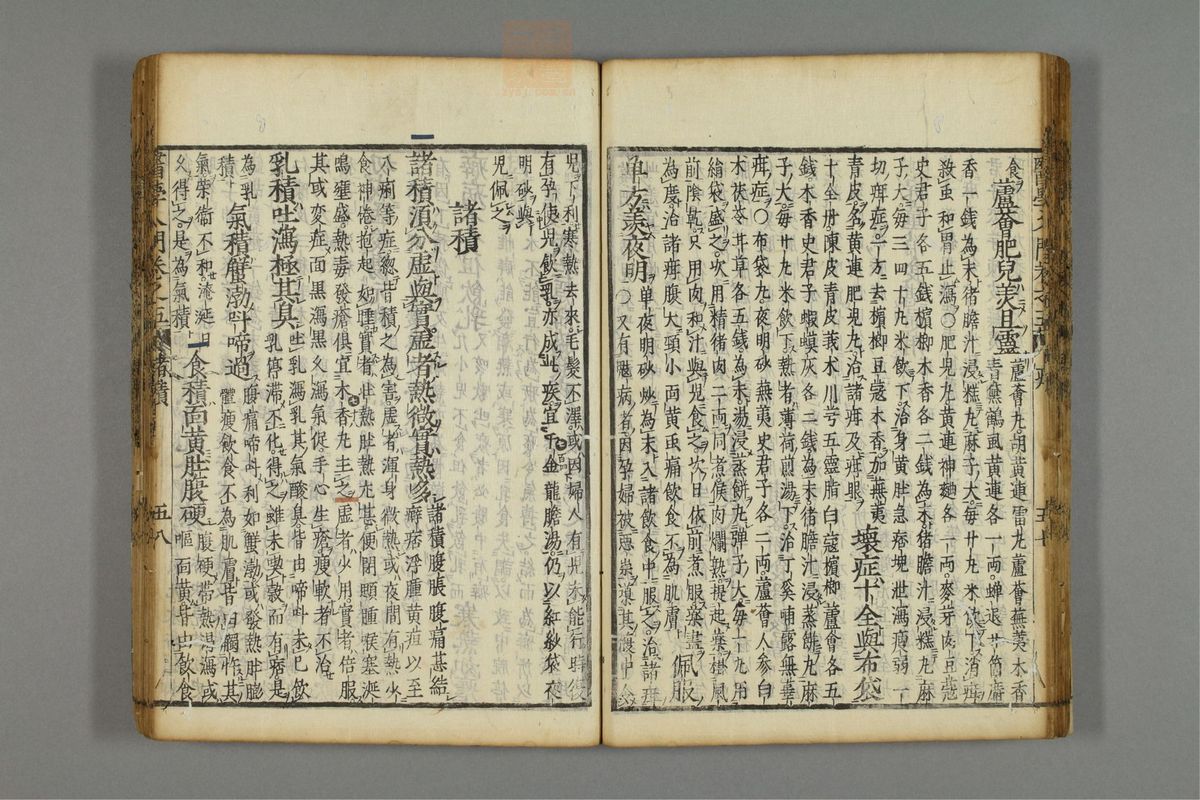 食 蘆薈肥兒美且靈 蘆薈丸胡黃連雷丸蘆薈蕪荑木香
青黛鶴虱黃連各一兩蟬退廿箇麝
香一錢為末猪膽汁浸糕丸麻子大每廿丸米飲下消疳
殺虫和胃止瀉○肥兒丸黃連神麯各一兩麥芽肉豆蔻
史君子各五錢檳榔木香各二錢為末猪膽汁浸糕丸麻
子大每三四十丸米飲下治身黃肚急痞塊泄瀉瘦弱一
切疳症一方去檳榔豆蔻木香加蕪荑
青皮名黃連肥兒丸治諸疳及疳眼 壞症十全與布袋
十全丹陳皮青皮莪术川芎五靈脂白蔻檳榔蘆薈各五
錢木香史君子蝦蟆灰各二錢為末猪膽汁浸蒸餅丸麻
子大每廿丸米飲下熱者薄荷煎湯下治丁奚哺露無辜
疳症○布袋丸夜明砂蕪荑史君子各二兩蘆薈人參白
术茯苓甘草各五錢為末湯浸蒸餅丸彈子大每一丸用
絹袋盛之次用精猪肉二兩同煮候肉爛熟提起藥掛風
前陰乾只用肉和汁與兒食之次日依前煮服藥盡
為度治諸疳腹大頭小面黃虫痛飲食不為肌膚 佩服
單方羡夜明 單夜明砂炒為末入諸飲食中服之治諸疳
○又有鬾病者因孕婦被惡祟導其腹中令
兒下利寒熱去來毛髮不澤或因婦人有兒未能行時復
有孕使兒飲乳亦成此疾宜下金龍膽湯仍以紅紗袋夜
明砂與
兒佩之
諸積
諸積須分虛與實虛者熱微實熱多 諸積腹脹腹痛甚結
癖痞浮腫黃疸以至
八痢等症總皆積之為害虛者渾身微熱或夜間有熱少
食神倦抱起如睡實者肚熱肚熱尤甚便閉頭腫喉塞涎
鳴壅盛熱毒發瘡俱宜木香丸主之虛者少用實者倍服
其或變症面黑瀉黑久瀉氣促手心生瘡瘦軟者不治
乳積吐瀉極其臭 吐乳瀉乳其氣酸臭皆由啼叫未已飲
乳停滯不化得之雖未喫穀而有瘡是
為乳
積 氣積蟹渤叫啼過 腹痛啼叫利如蟹渤或發熱肚脇
體瘦飲食不為肌膚皆因觸忤其
氣榮衛不和淹延日
久得之是為氣積 食積面黃肚腹硬 腹硬帶熱渴瀉或
嘔面黃皆由飲食
醫學入門卷之五 諸積 五八